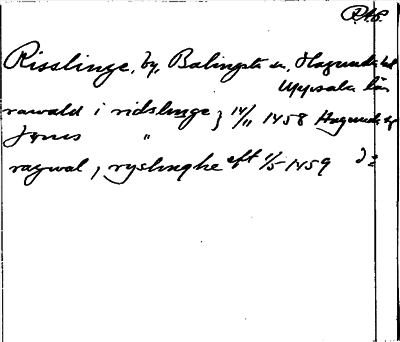 Risslinge, by, Balingsta sn, Hagunda hd
Uppsala län
rawald i ridslinge } 14/11 1458 Hagunda
Jönis "
ragwal, ryslinghe eft 1/5 1459